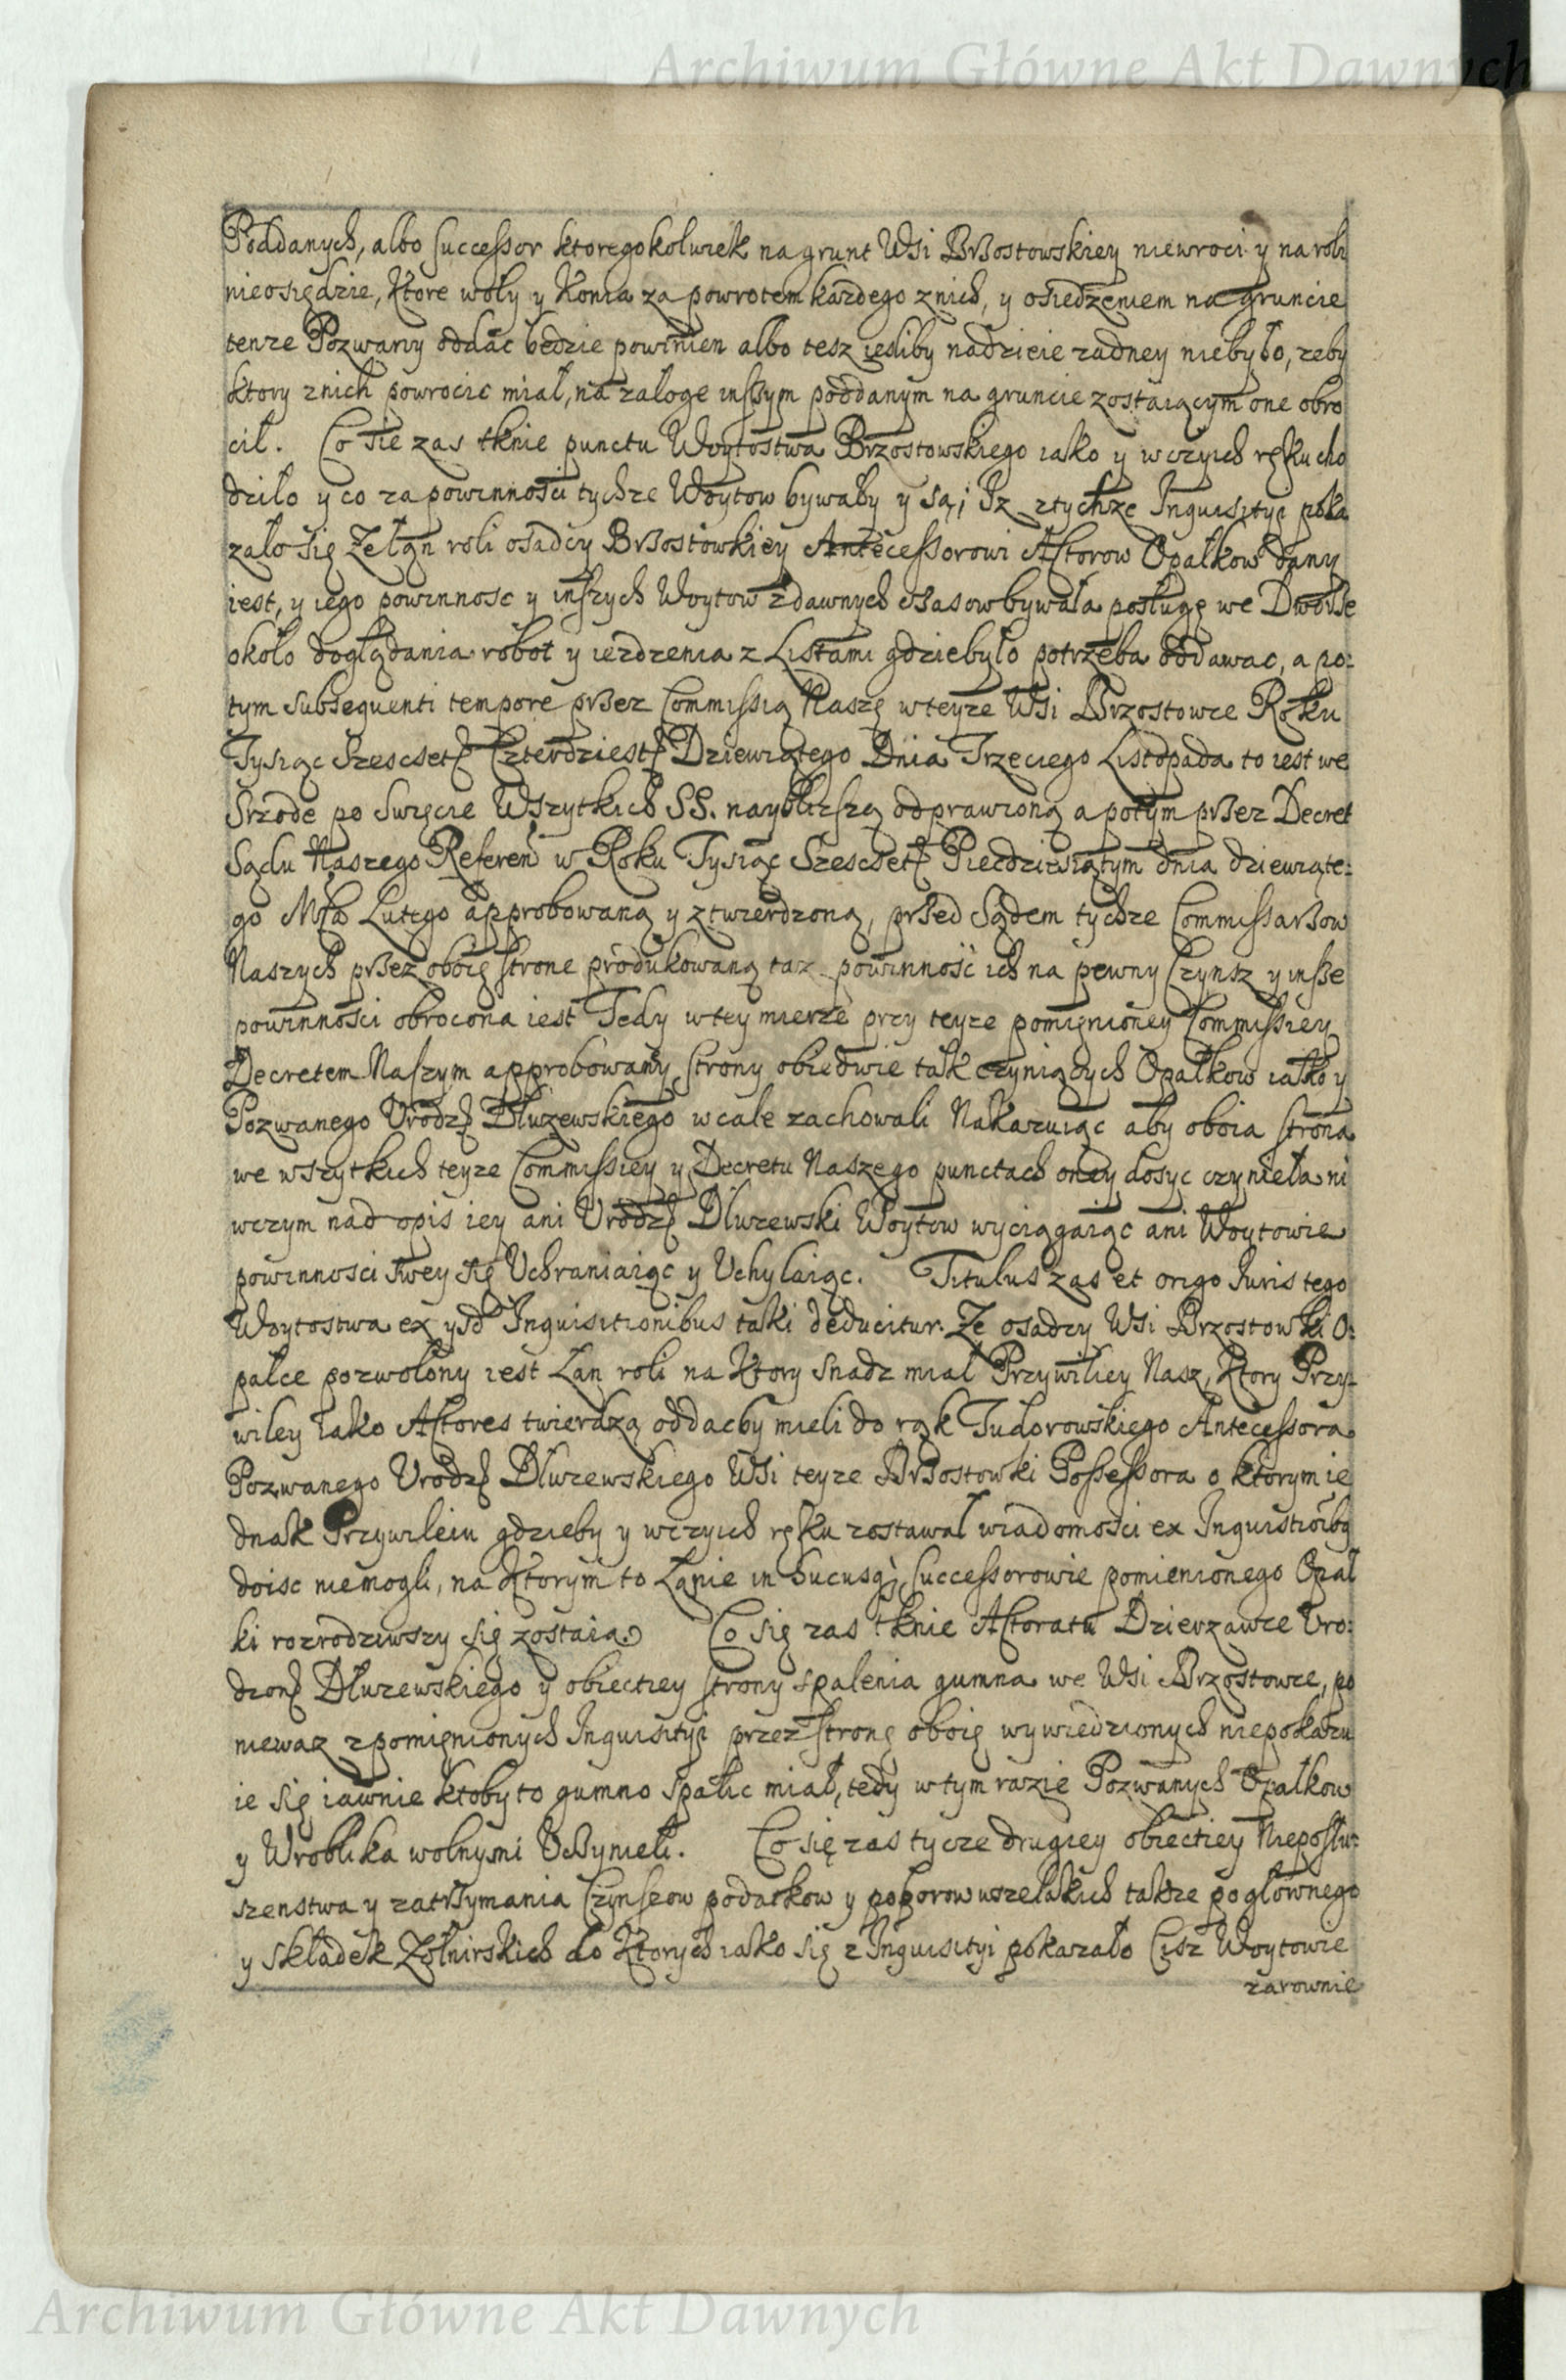 Archiwum Główne Akt Dawnych
Poddanych, albo successor ktoregokolwiek na grunt Wsi Brzostowskiey niewroci y na roli
nieosiędzie, Ktore woły y Konia za powrotem kazdego znich, y osiedzeniem na gruncie
tenze Pozwany oddac bedzie powinien albo tesz iesliby nadzieie zadney niebyło, zeby
ktory znich powrocic miał, na załoge inszym poddanym na gruncie zostaiącym one obro
cił. Co sie zas tknie punctu Woytostwa Brzostowskiego iako y w czyich ręku cho
dziło y co za powinnosci tychze Woytow bywały y są; Iz z tychze Inquisityi poka
zało się Ze łan roli osadcy Brzostowkiey Antecessorowi Actorow Opałkow dany
iest, y iego powinnosc y inszych Woytow zdawnych czasow bywała posługę we Dworze
około doglądania robot y iezdzenia z Listami gdziebyło potrzeba oddawac, a po:
tym subsequenti tempore przez Commissią Naszę w teyze Wsi Brzostowce Roku
Tysiąc Szescset Czterdziest Dziewiątego Dnia Trzeciego Listopada to iest we
Srzode po Swięcie Wszytkich SS. naybliższą odprawioną a potym przez Decret
Sądu Naszego Referen w Roku Tysiąc Szescset Piecdziesiątym dnia dziewiąte:
go Mca Lutego approbowaną y ztwierdzoną, przed Sądem tychze Commissarzow
Naszych przez oboię strone produkowaną taz powinność ich na pewny Czynsz y insze
powinności obrocona iest Tedy w tey mierze przy teyze pomięnioney Commissiey
Decretem Naszym approbowany strony obiedwie tak czyniących Opałkow iako y
Pozwanego Vrodz Dłuzewskiego w cale zachowali Nakazuiąc aby oboia strona
we wszytkich teyze Commissiey y Decretu Naszego punctach oney dosyc czynieła ni
wczym nad opis iey ani Vrodz Dluzewski Woytow wyciągaiąc ani Woytowie
powinnosci swey się Vchraniaiąc y Vchylaiąc. Titulus zas et origo Iuris tego
Woytostwa ex ysd Inquisitionibus taki deducitur. Ze osadcy Wsi Brzostowki O:
pałce pozwolony iest Lan roli na Ktory snadz miał Przywiliey Nasz, Ktory Przy:
wiley iako Actores twierdzą oddacby mieli do rąk Tudorowskiego Antecessora
Pozwanego Vrodz Dluzewskiego Wsi teyze Brzostowki Possessora o ktorym ie
dnak Przywileiu gdzieby y w czyich ręku zostawał wiadomości ex Inquisitioibq
doisc niemogli, na Ktorym to Łanie in hucusq; successorowie pomienionego Opał
ki rozrodziwszy się zostaią. Co się zas tknie Actoratu Dzierzawce Vro:
dzon Dłuzewskiego y obiectiey strony spalenia gumna we Wsi Brzostowce, po
niewaz z pomięnionych Inquisityi przez stronę oboię wywiedzionych niepokazu
ie się iawnie ktoby to gumno spalic miał, tedy w tym razie Pozwanych Opałkow
y Wroblika wolnymi Vczynieli. Co się zas tycze drugiey obiectiey Nieposłu:
szenstwa y zatrzymania Czynszow podatkow y poborow wszelakich takze pogłownego
y składek Zołnirskich do Ktorych iako się z Inquisityi pokazało Cisz Woytowie
zarownie
Archiwum Główne Akt Dawnych